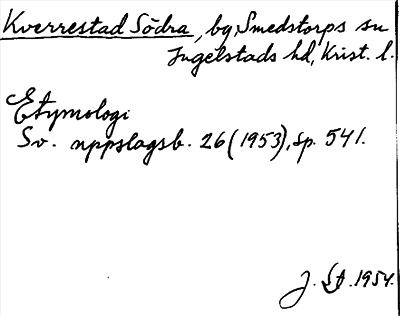 Kverrestad Södra, by, Smedstorps sn
Ingelstads hd, Krist. l.
Etymologi
Sv. uppslagsb. 26 (1953), sp. 541.
J. St. 1954.